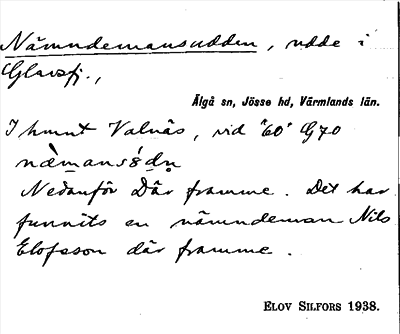 Nämndemansudden, udde i
Glavsfj.,
Älgå sn, Jösse hd, Värmlands län.
I hmnt Valnäs, vid "60" G70
Nedanför Där framme. Det har
funnits en nämndeman Nils
Elofsson där framme.
ELOV SILFORS 1938.